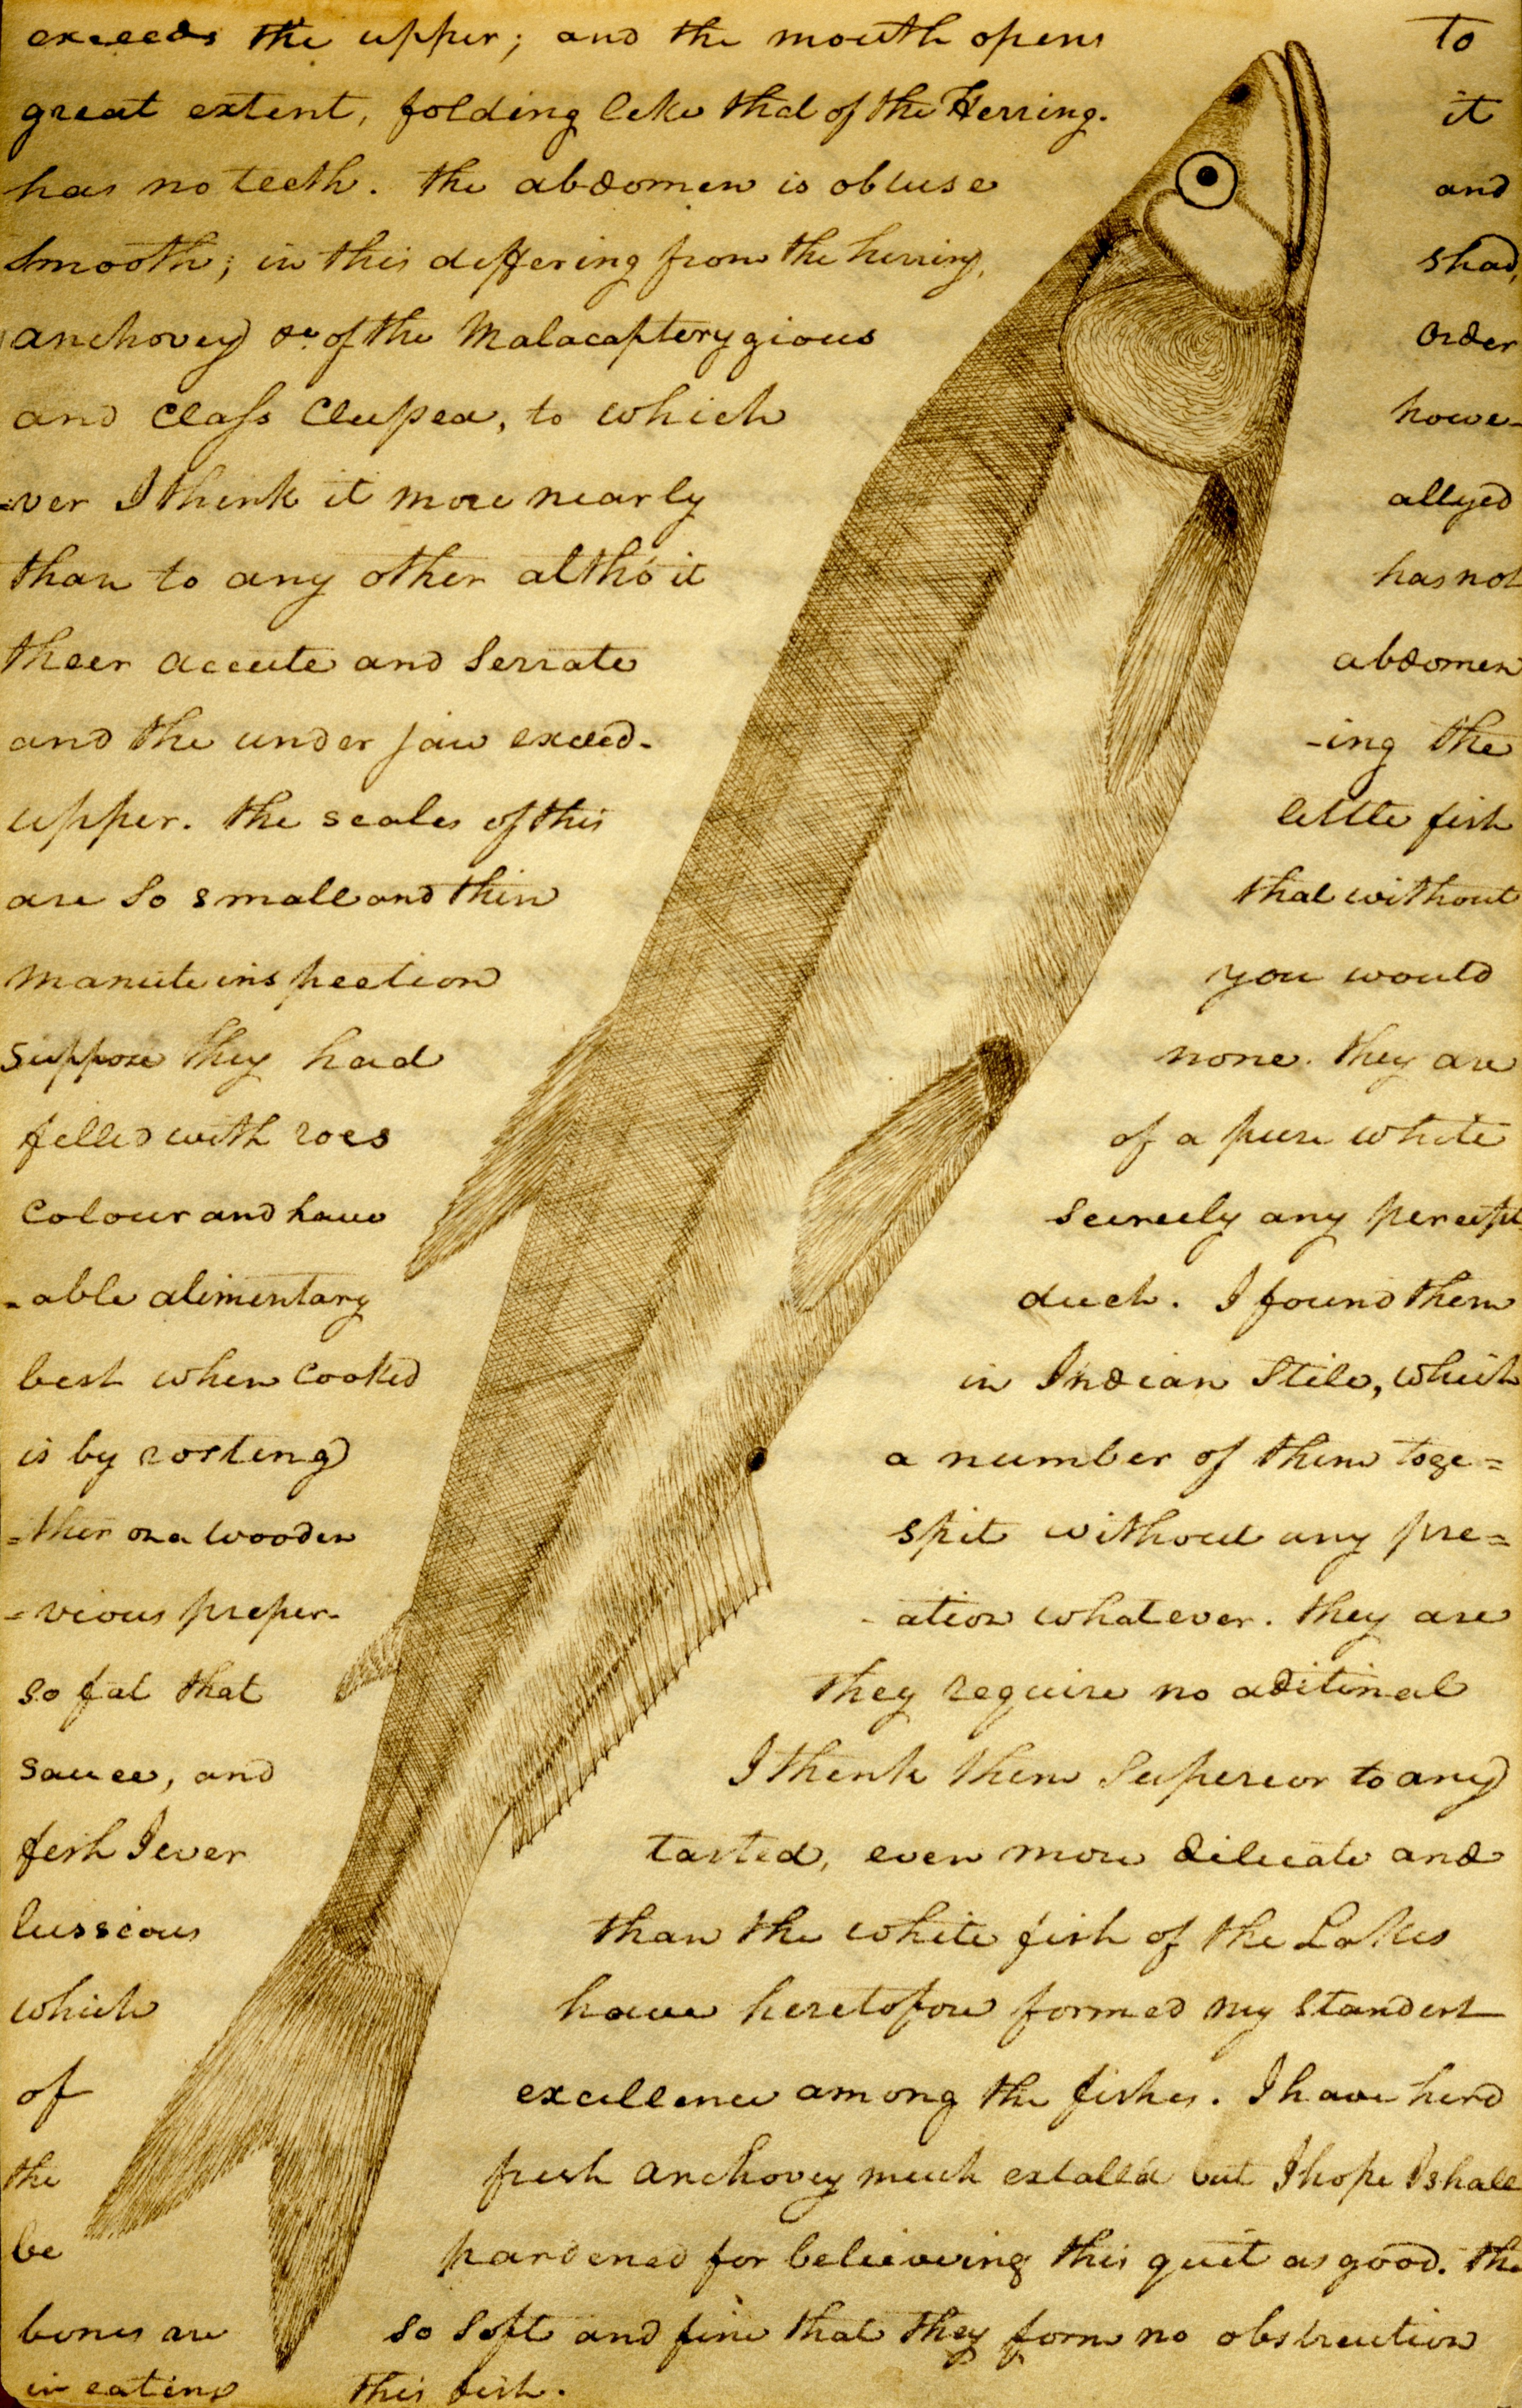 exceeds the upper; and the mouth opens To
great extent, folding like that of the Herring. it
has no teeth. the abdomen is obtuse and
smooth; in this differing from the herring, shad,
anchovey &c of the Malacapterygious Order
and Class Clupea, to which howe-
-ver I think it more nearly allyed
than to any other altho' it has not
their accute and serrate abdomen
and the under jaw exceed- -ing the
upper. the scales of this little fish
are so small and thin that without
manute inspection you would
suppose they had none. they are
filled with roes of a pure white
colour and have scercely any percept
-able alimentary duct. I found them
best when cooked in Indian Stile, which
is by rosting a number of them toge=
=ther on a wooden spit without any pre=
=vious preper- -ation whatever. they are
so fat that they require no aditinal
sauce, and I think them superior to any
fish I ever tasted, even more dilicate and
lussious than the white fish of the Lakes
which have heretofore formed my standert
of excellence among the fishes. I have herd
the fresh anchovey much extalld but I hope I shall
be pardened for believeing this quit as good. the
bones are so soft and fine that they form no obstruction
in eating this fish.